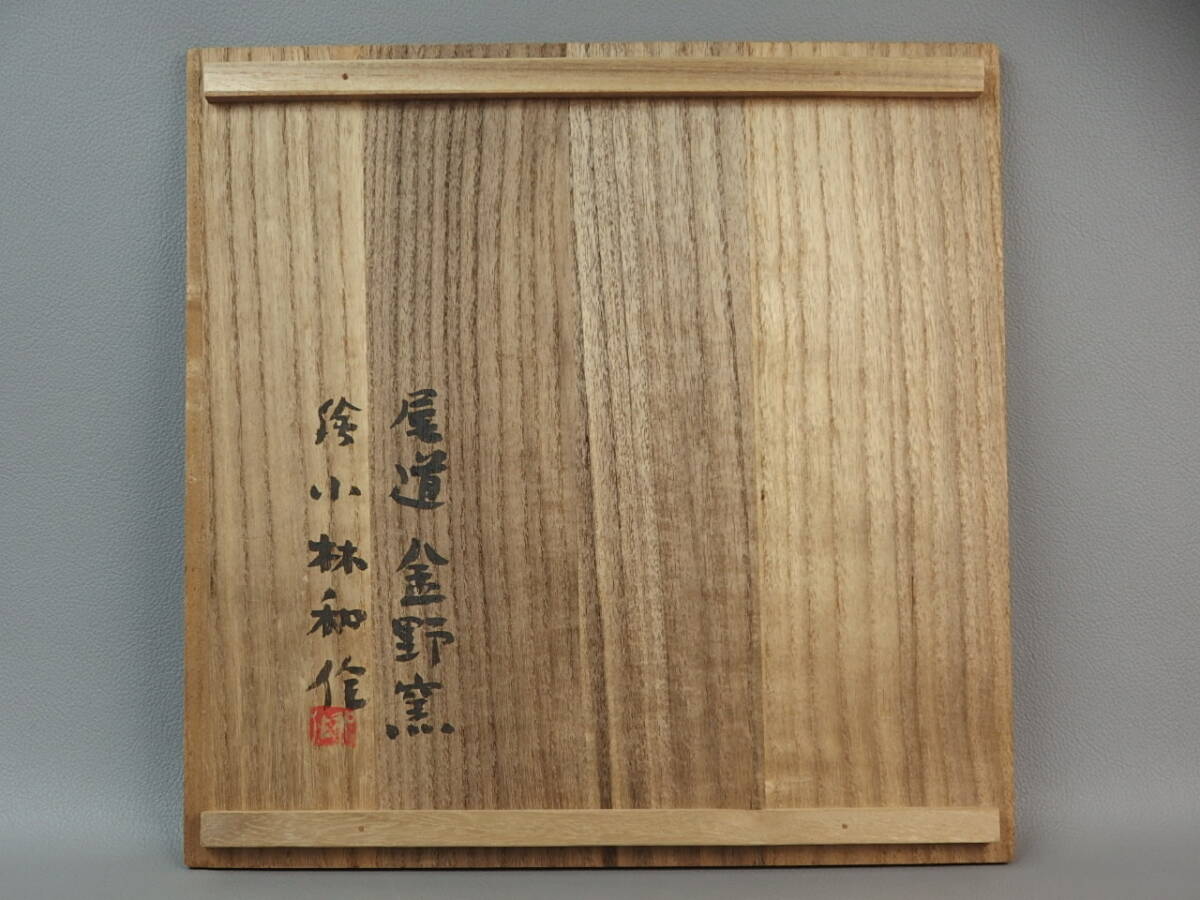 尾道 金野窯
絵 小林和作